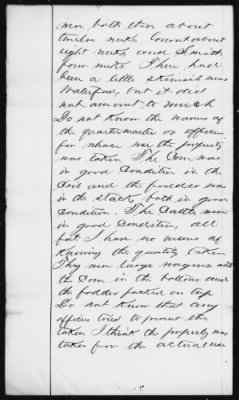 men both then about
twelve miles Conant about
eight miles and Smith
four miles There had
been a little skirmish near
Waterford, but it did
not amount to much
Do not know the names of
the quartermaster or officers
for whose use the property
was taken The Corn was
in good Condition in the
and the fodder was
in the stack, both in good
condition. The Cattle were
in good Condition, all
but I have no means of
Knowing the quantity taken
They were large wagons and
the Corn in the bottom and
the fodder packed on top
Do not know that any
officer tried to prevent the
taken I think the property was
taken for the actual use